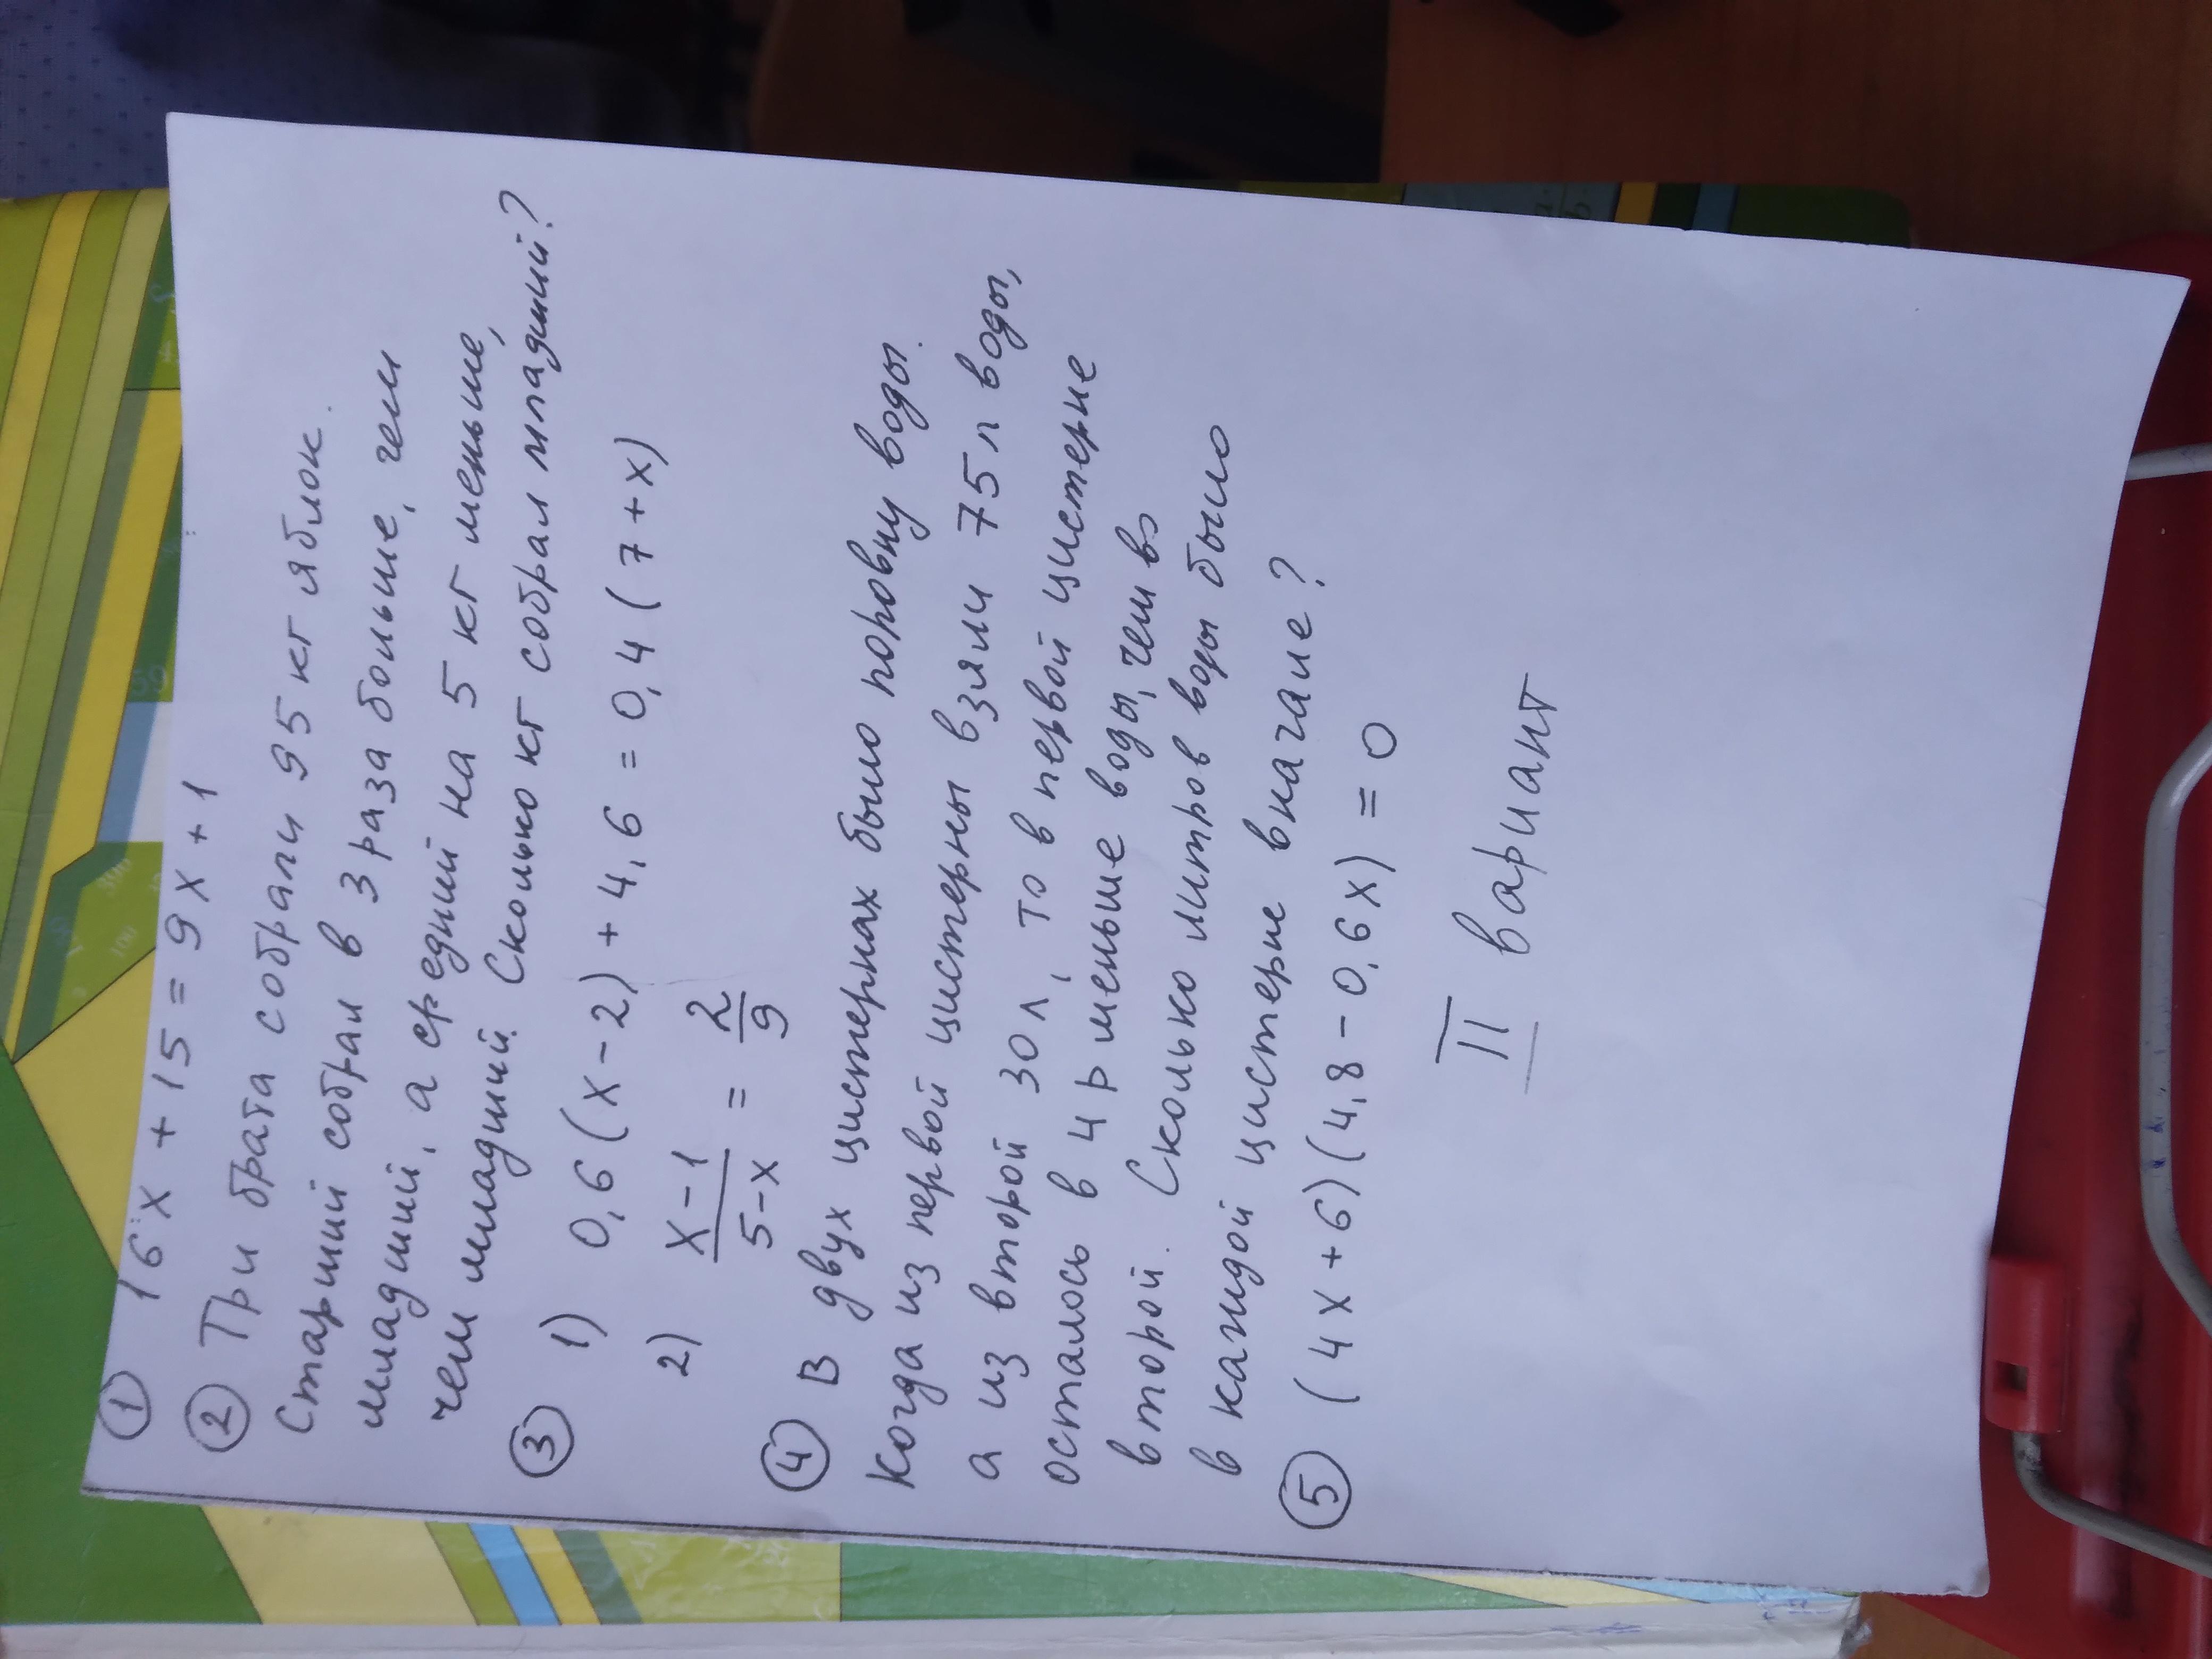 ① 16x + 15 = 9x + 1
② Три брата собрали 95 кг яблок.
Старший собрал в 3 раза больше, чем
младший, а средний на 5 кг меньше,
чем младший. Сколько кг собрал младший?
③ 1) 0,6(x-2) + 4,6 = 0,4(7+x)
2) \frac{x-1}{5-x} = \frac{2}{9}
④ В двух цистернах было поровну воды.
Когда из первой цистерны взяли 75 л воды,
а из второй 30 л, то в первой цистерне
осталось в 4 р меньше воды, чем в
второй. Сколько литров воды было
в каждой цистерне вначале?
⑤ (4x+6)(4,8-0,6x) = 0
II вариант